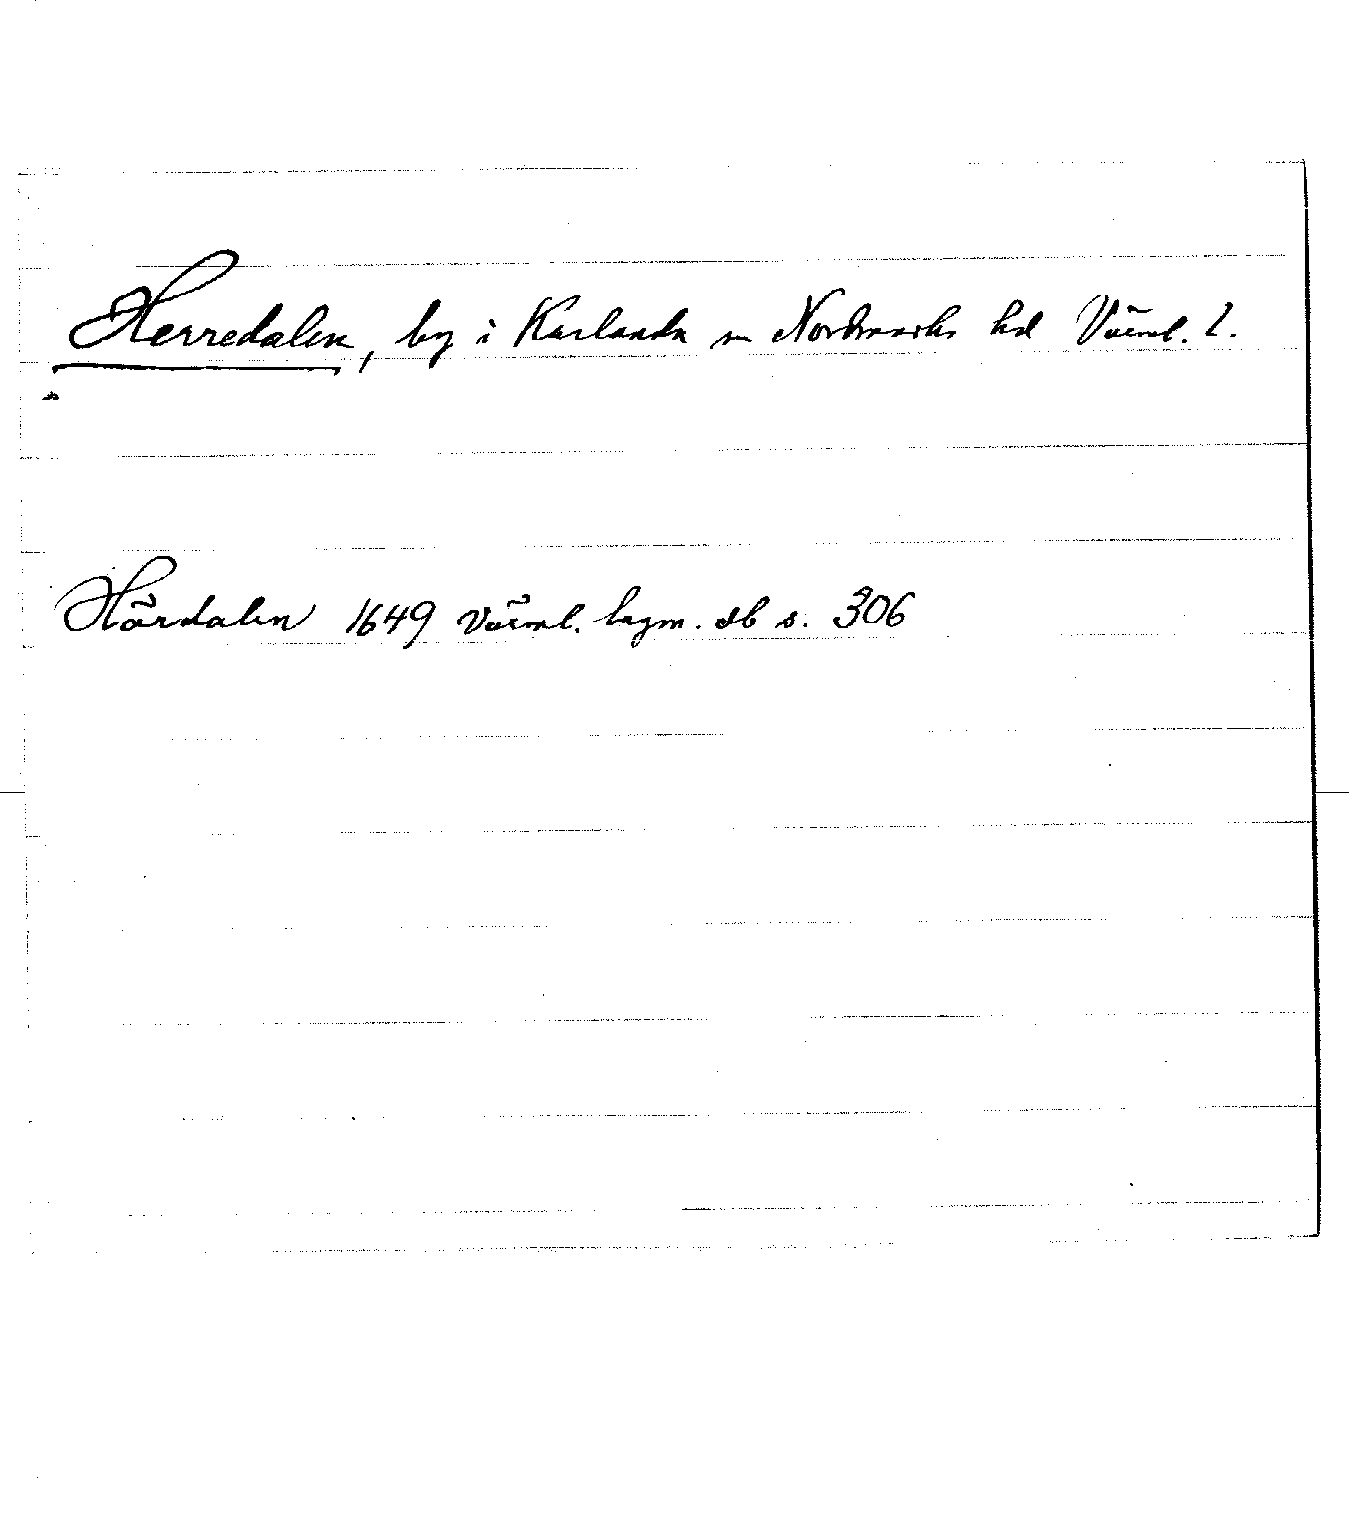 Herredalen, by i Karlanda sn Nordmarks hd Värml. l.
Härdalen 1649 Värml. lagm. db s. 306